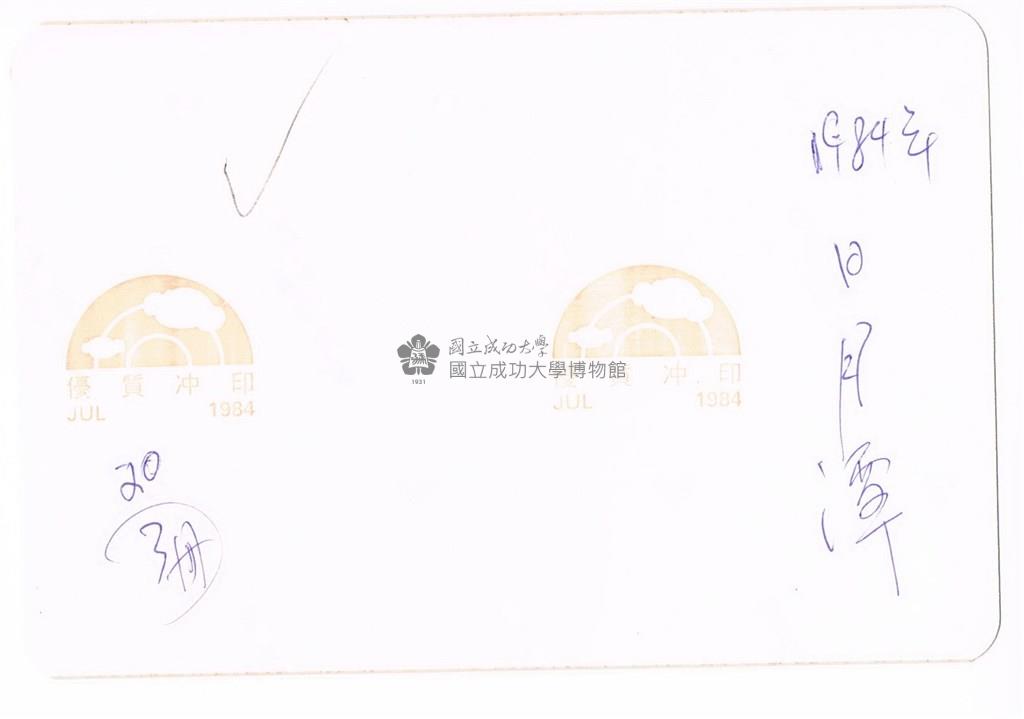 1984年
日月潭
國立成功大學
國立成功大學博物館
1931
優質冲印
JUL 1984
優質冲印
JUL 1984
20
3册